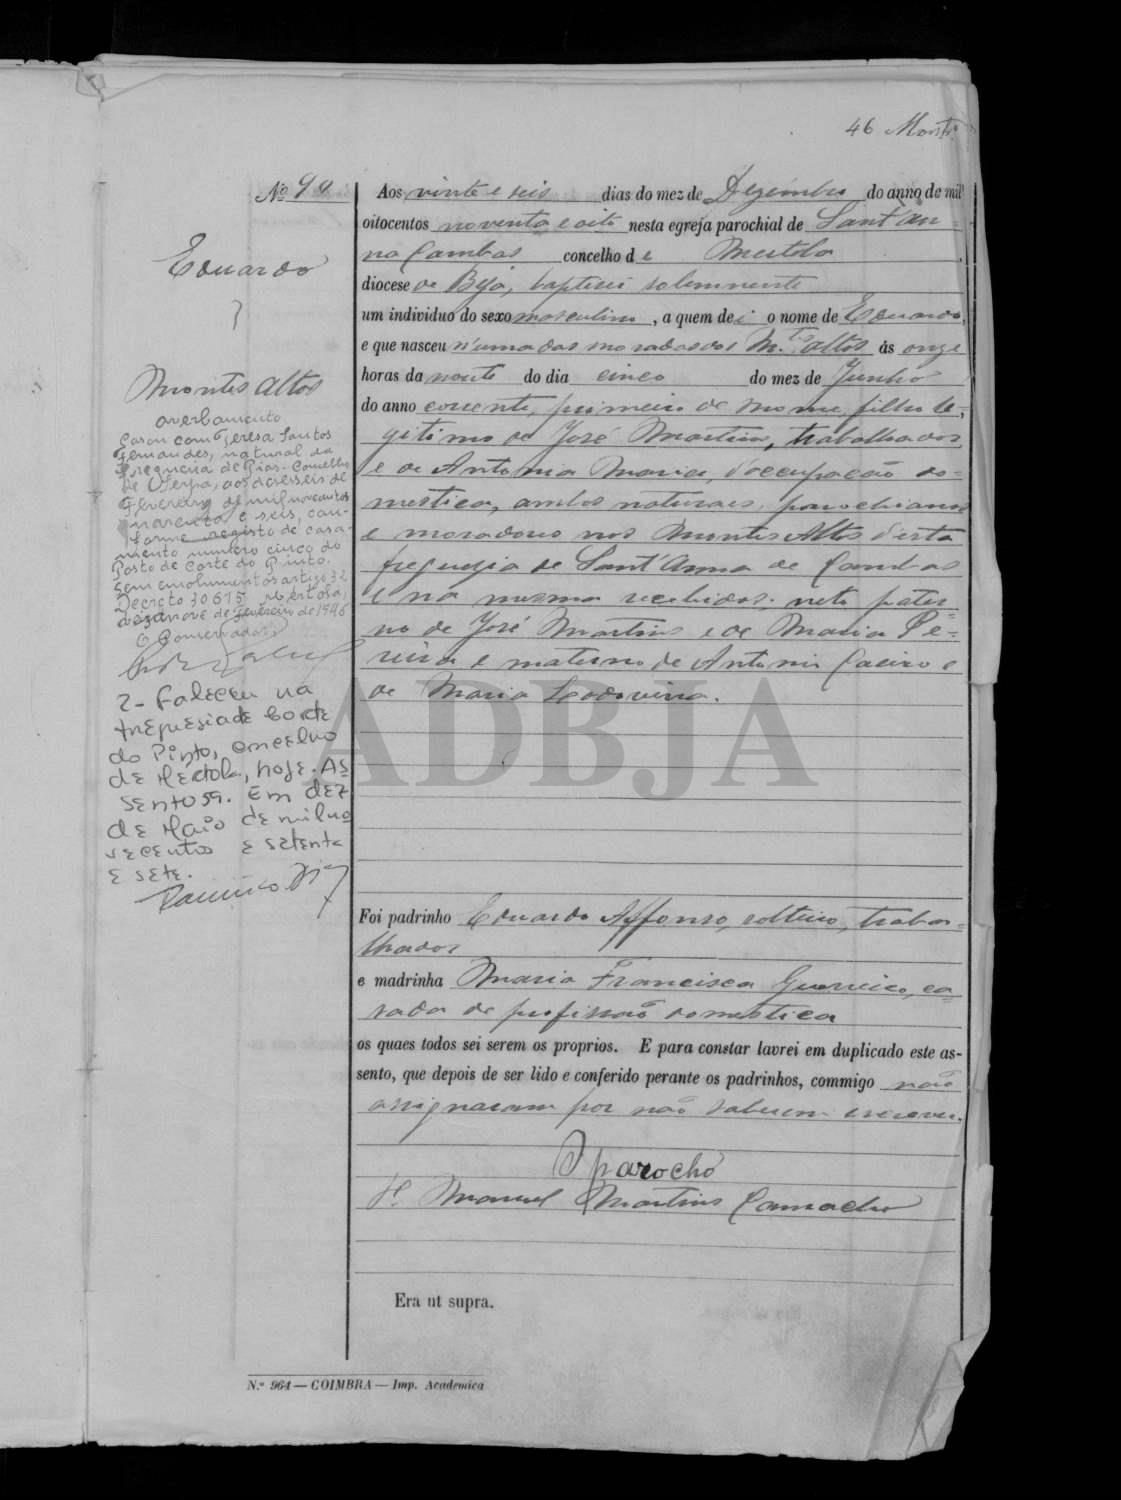 46
Nº 90
Eduardo
Montes Altos
averbamento
Casou com Teresa Santos
Fernandes, natural da
freguesia de Pias - Concelho
de Serpa, aos dezasseis de
Fevereiro de mil novecentos
quarenta e seis, con-
forme registo de casa-
mento numero cinco do
Posto de Corte do Pinto.
Sem emolumentos artigo 32
Decreto 30615 Mertola,
dezanove de Fevereiro de 1946
O Conservador,
2- Faleceu na
freguesia de Corte
do Pinto, concelho
de Mértola, hoje. As
sento 59. Em dez
de Maio de mil no
vecentos e setenta
e sete.
Aos vinte e seis dias do mez de Dezembro do anno de mil
oitocentos noventa e oito nesta egreja parochial de Sant'An-
na Cambas concelho de Mertola
diocese de Beja, baptisei solemnente
um individuo do sexo masculino, a quem dei o nome de Eduardo,
e que nasceu n'uma das moradas dos M.tes altos ás onze
horas da noute do dia cinco do mez de Junho
do anno corrente, primeiro de nome, filho le-
gitimo de José Martins, trabalhador
e de Antonia Maria, d'occupação do-
mestica, ambos naturaes, parochianos
e moradores nos Montes Altos d'esta
freguezia de Sant'Anna de Cambas
e na mesma recebidos; neto pater-
no de José Martins e de Maria Pe-
reira e materno de Antonio Caeiro e
de Maria Leodovina.
ADBJA
Foi padrinho Eduardo Affonso, solteiro, traba-
lhador
e madrinha Maria Francisca Guerreiro, ca-
sada de profissão domestica
os quaes todos sei serem os proprios. E para constar lavrei em duplicado este as-
sento, que depois de ser lido e conferido perante os padrinhos, commigo não
assignaram por não saberem escrever.
O parocho
P. Manuel Martins Camacho
Era ut supra.
N.º 964 — COIMBRA — Imp. Academica